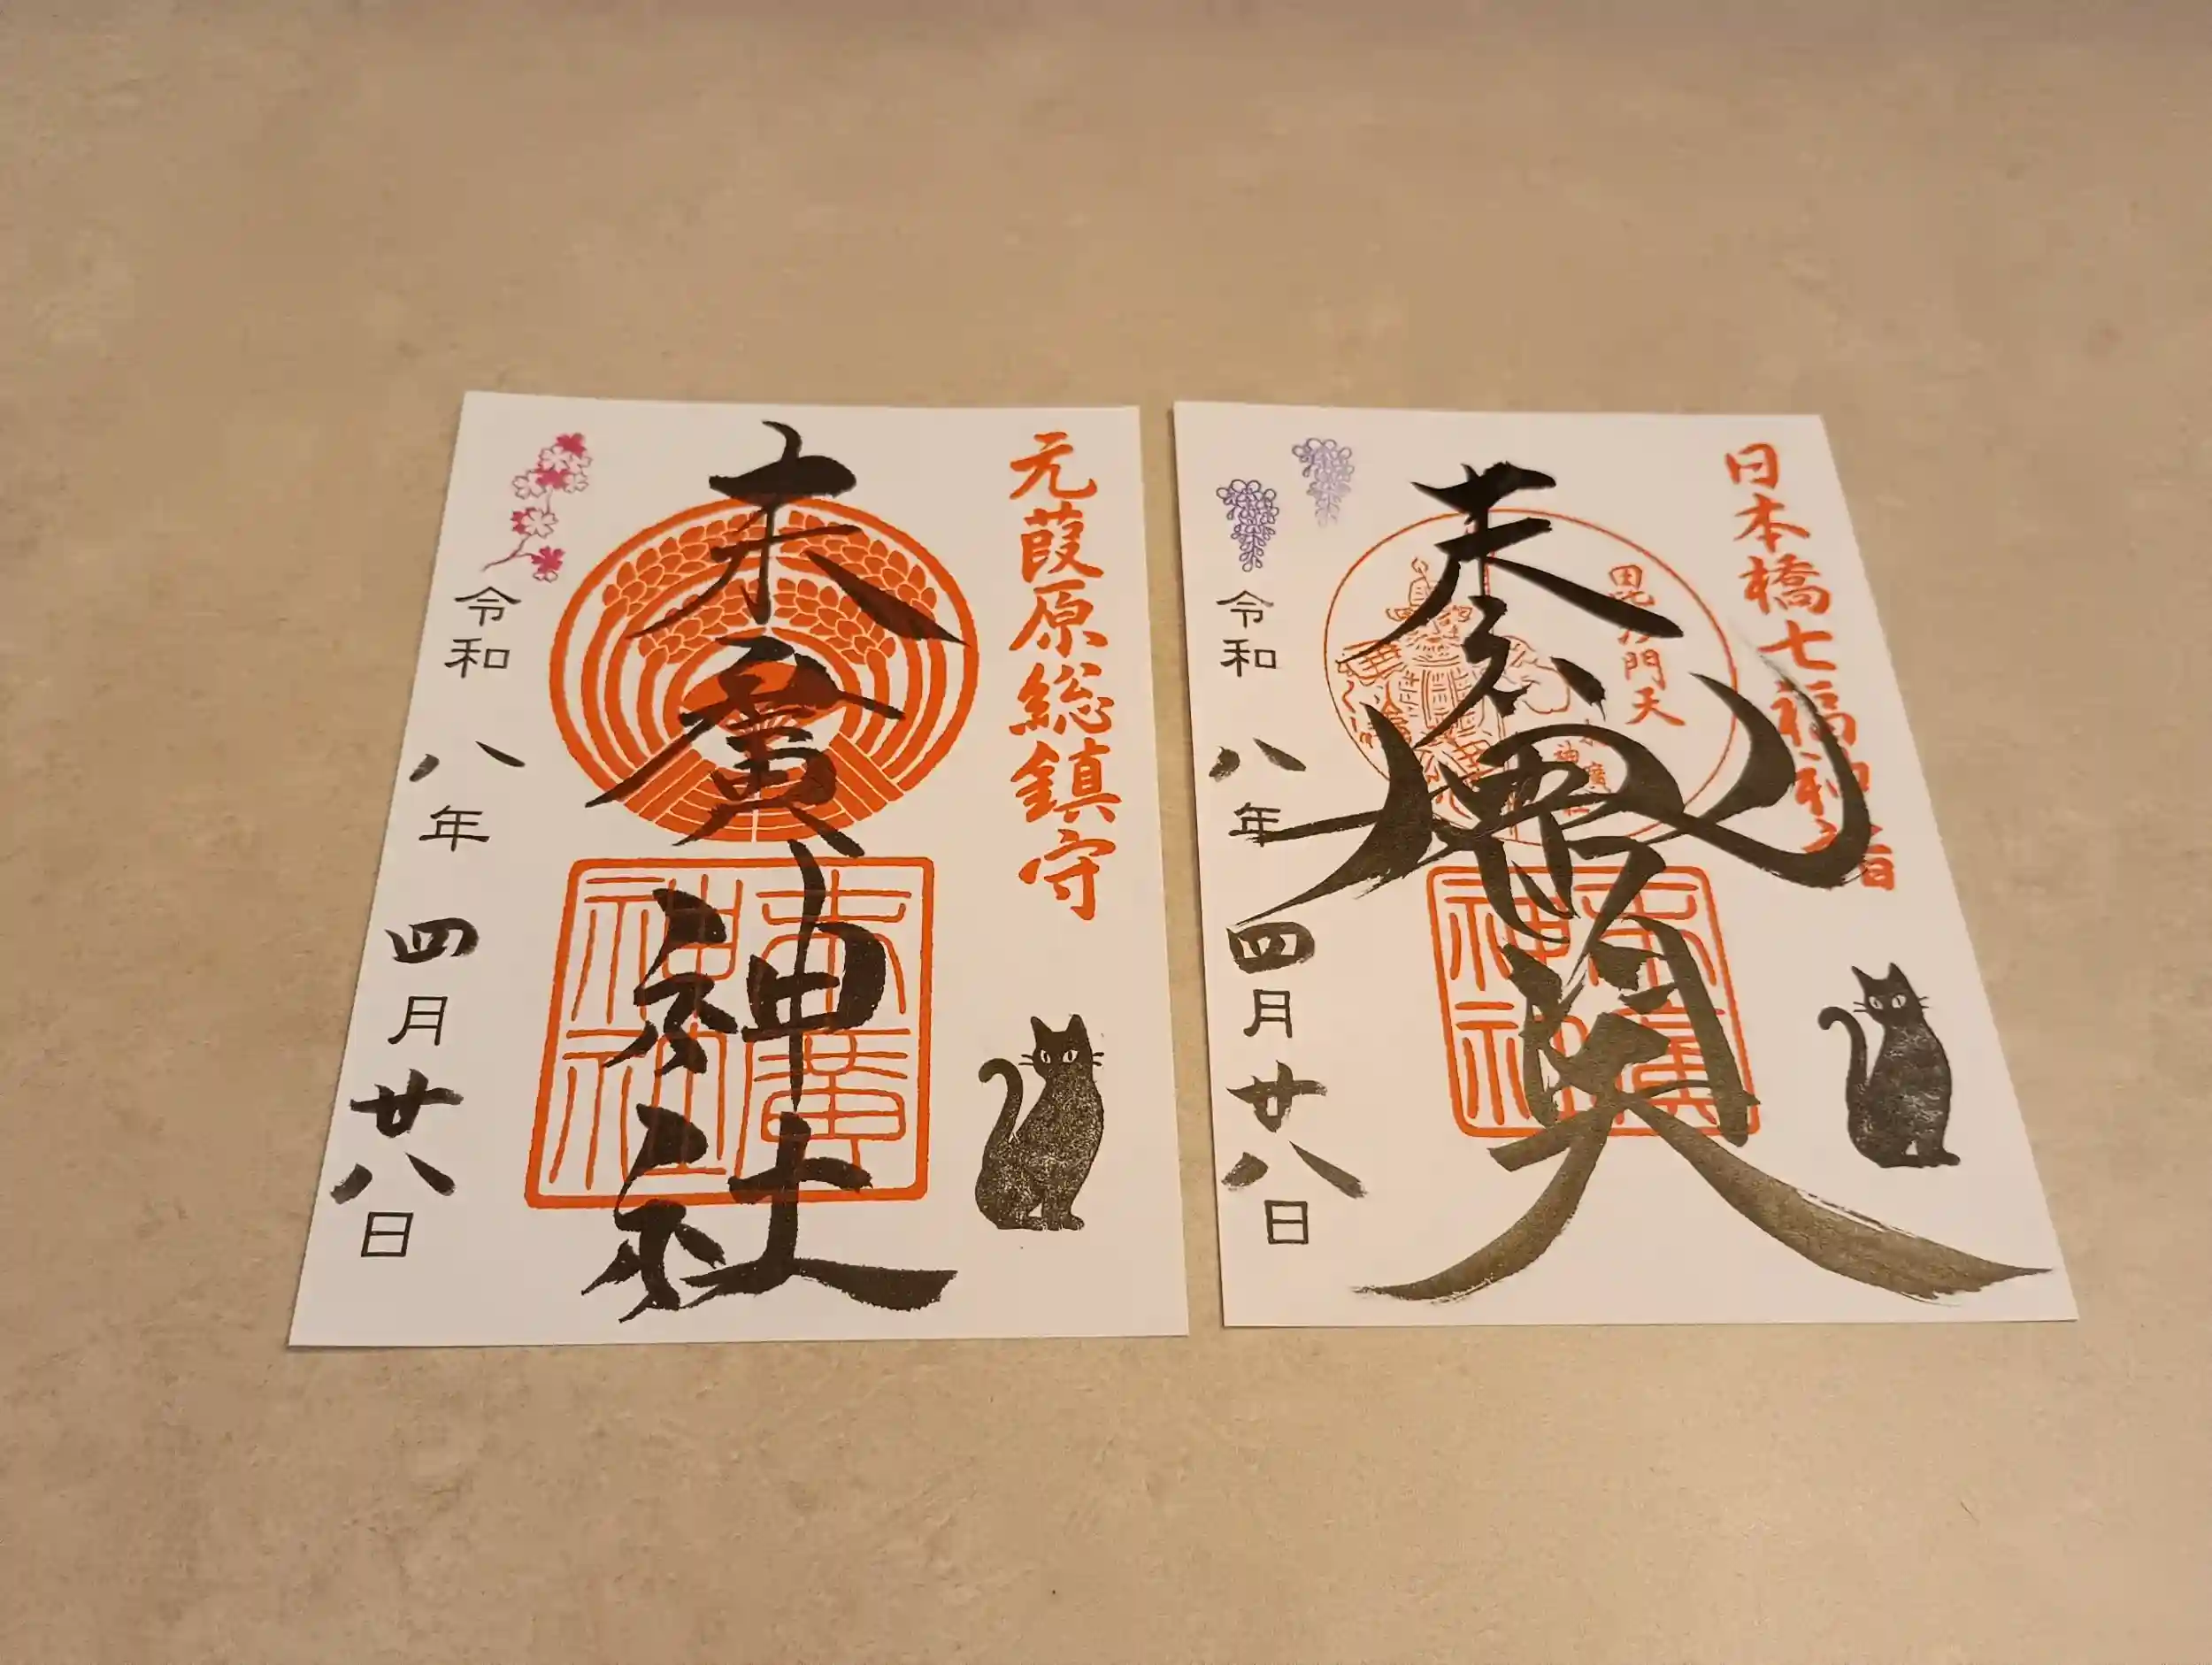 元葭原総鎮守
末廣神社
末廣
神社
令和八年四月廿八日
日本橋七福神詣
毘沙門天
毘沙門天
末廣
神社
末廣
神社
令和八年四月廿八日